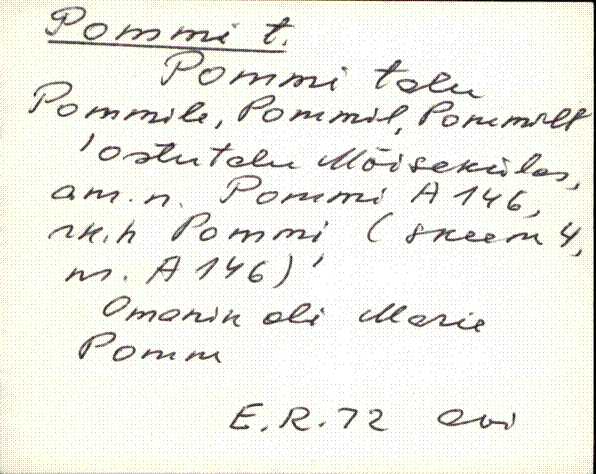 Pommi t.
Pommi talu
Pommile, Pommil, Pommilt
'ostutalu Mõisekülas,
am.n. Pommi A 146,
rk.h Pommi (skeem 4,
nr. A 146)'
Omanik oli Marie
Pomm
E.R. 72 Avi